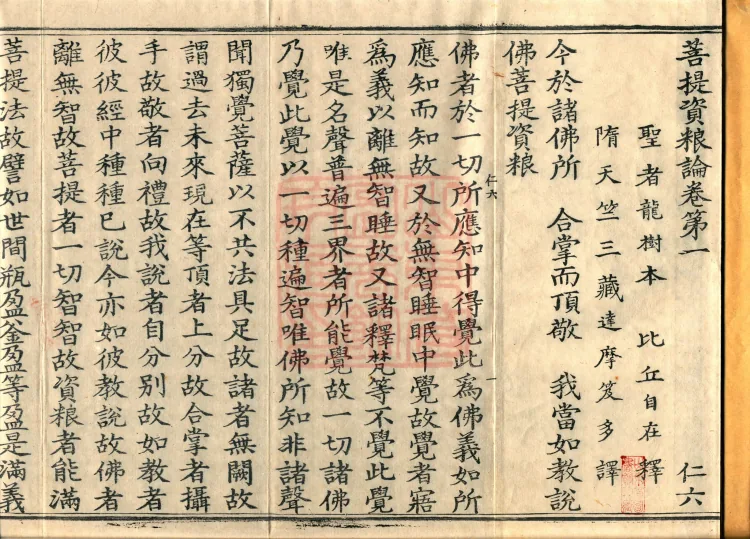 菩提資粮論卷第一 仁六
聖者龍樹本 比丘自在釋
隋天竺三藏達摩笈多譯
今於諸佛所 合掌而頂敬 我當如教說
佛菩提資粮
佛者於一切所應知中得覺此爲佛義如所
仁六 一
應知而知故又於無智睡眠中覺故覺者寤
爲義以離無智睡故又諸釋梵等不覺此覺
唯是名聲普遍三界者所能覺故一切諸佛
乃覺此覺以一切種遍智唯佛所知非諸聲
聞獨覺菩薩以不共法具足故諸者無闕故
謂過去未來現在等頂者上分故合掌者攝
手故敬者向禮故我說者自分別故如教者
彼彼經中種種已說今亦如彼教說故佛者
離無智故菩提者一切智智故資粮者能滿
菩提法故譬如世間瓶盈釜盈等盈是滿義